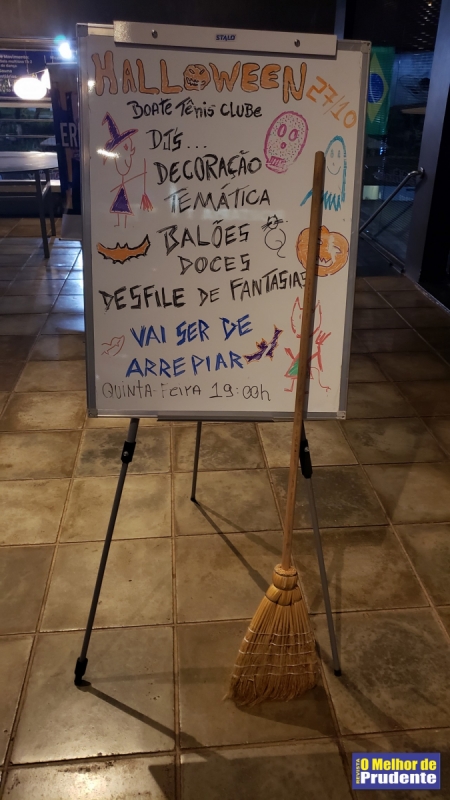 STALO
HALLOWEEN
27/10
BOATE TÊNIS CLUBE
DJS...
DECORAÇÃO
TEMÁTICA
BALÕES
DOCES
DESFILE DE FANTASIAS
VAI SER DE
ARREPIAR
QUINTA-FEIRA 19:00h
REVISTA
O Melhor de
Prudente